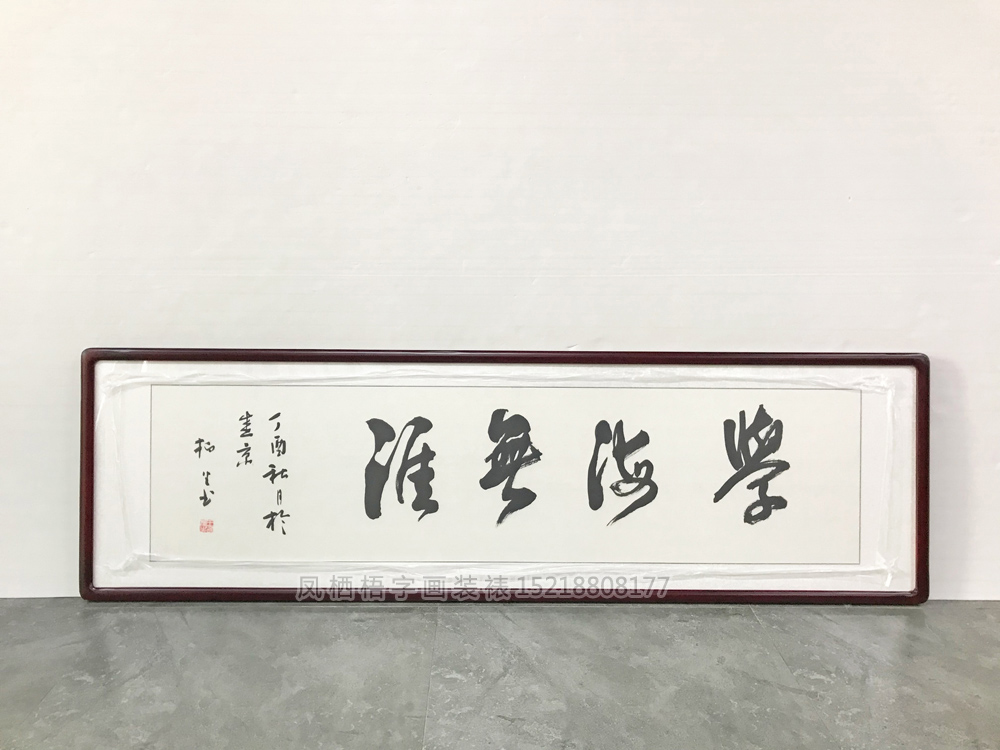 學海無涯
丁酉秋月於
燕京
柏生书
凤栖梧字画装裱15218808177